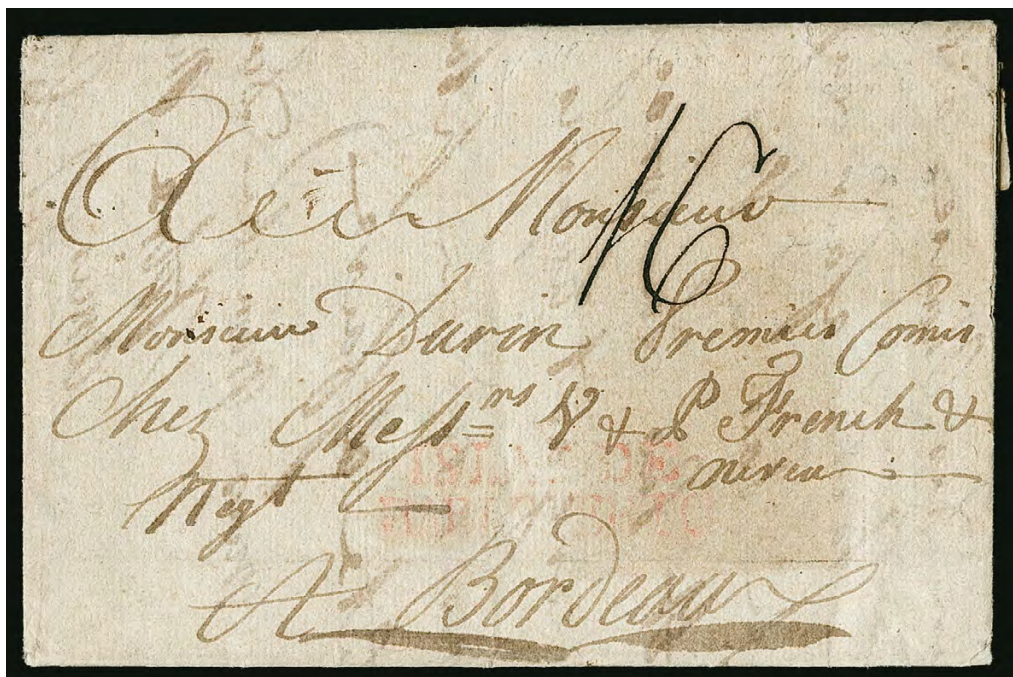 A Monsieur
16
Monsieur Duron Premier Comis
Chez Messrs V & P French &
neveu
Negt
A Bordeau